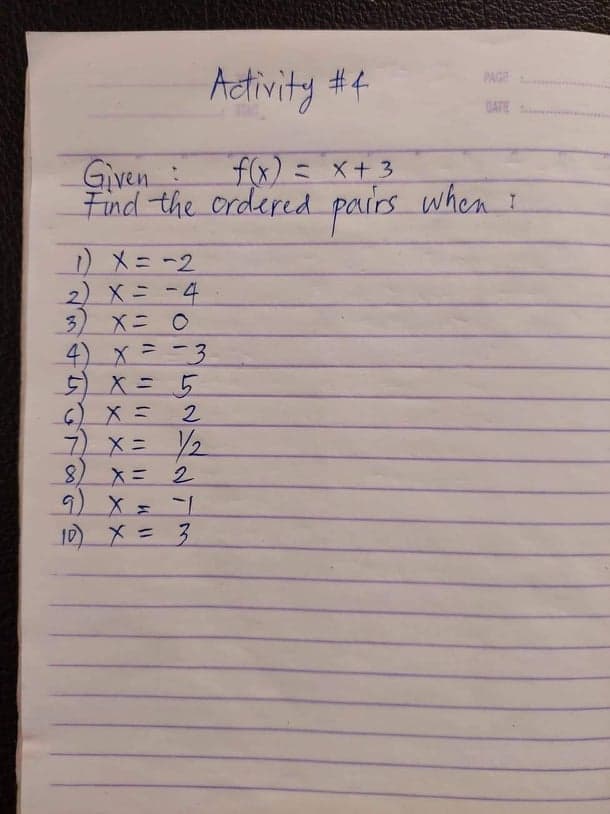 Activity #4
PAGE
DATE
Given : f(x) = x + 3
Find the ordered pairs when :
1) x = -2
2) x = -4
3) x = 0
4) x = -3
5) x = 5
6) x = 2
7) x = 1/2
8) x = 2
9) x = -1
10) x = 3